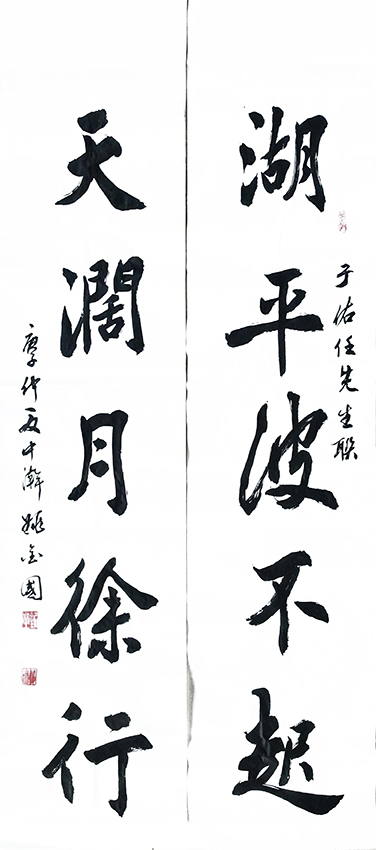 湖平波不起
于佑任先生联
天濶月徐行
庚子仲夏中澣姚金國